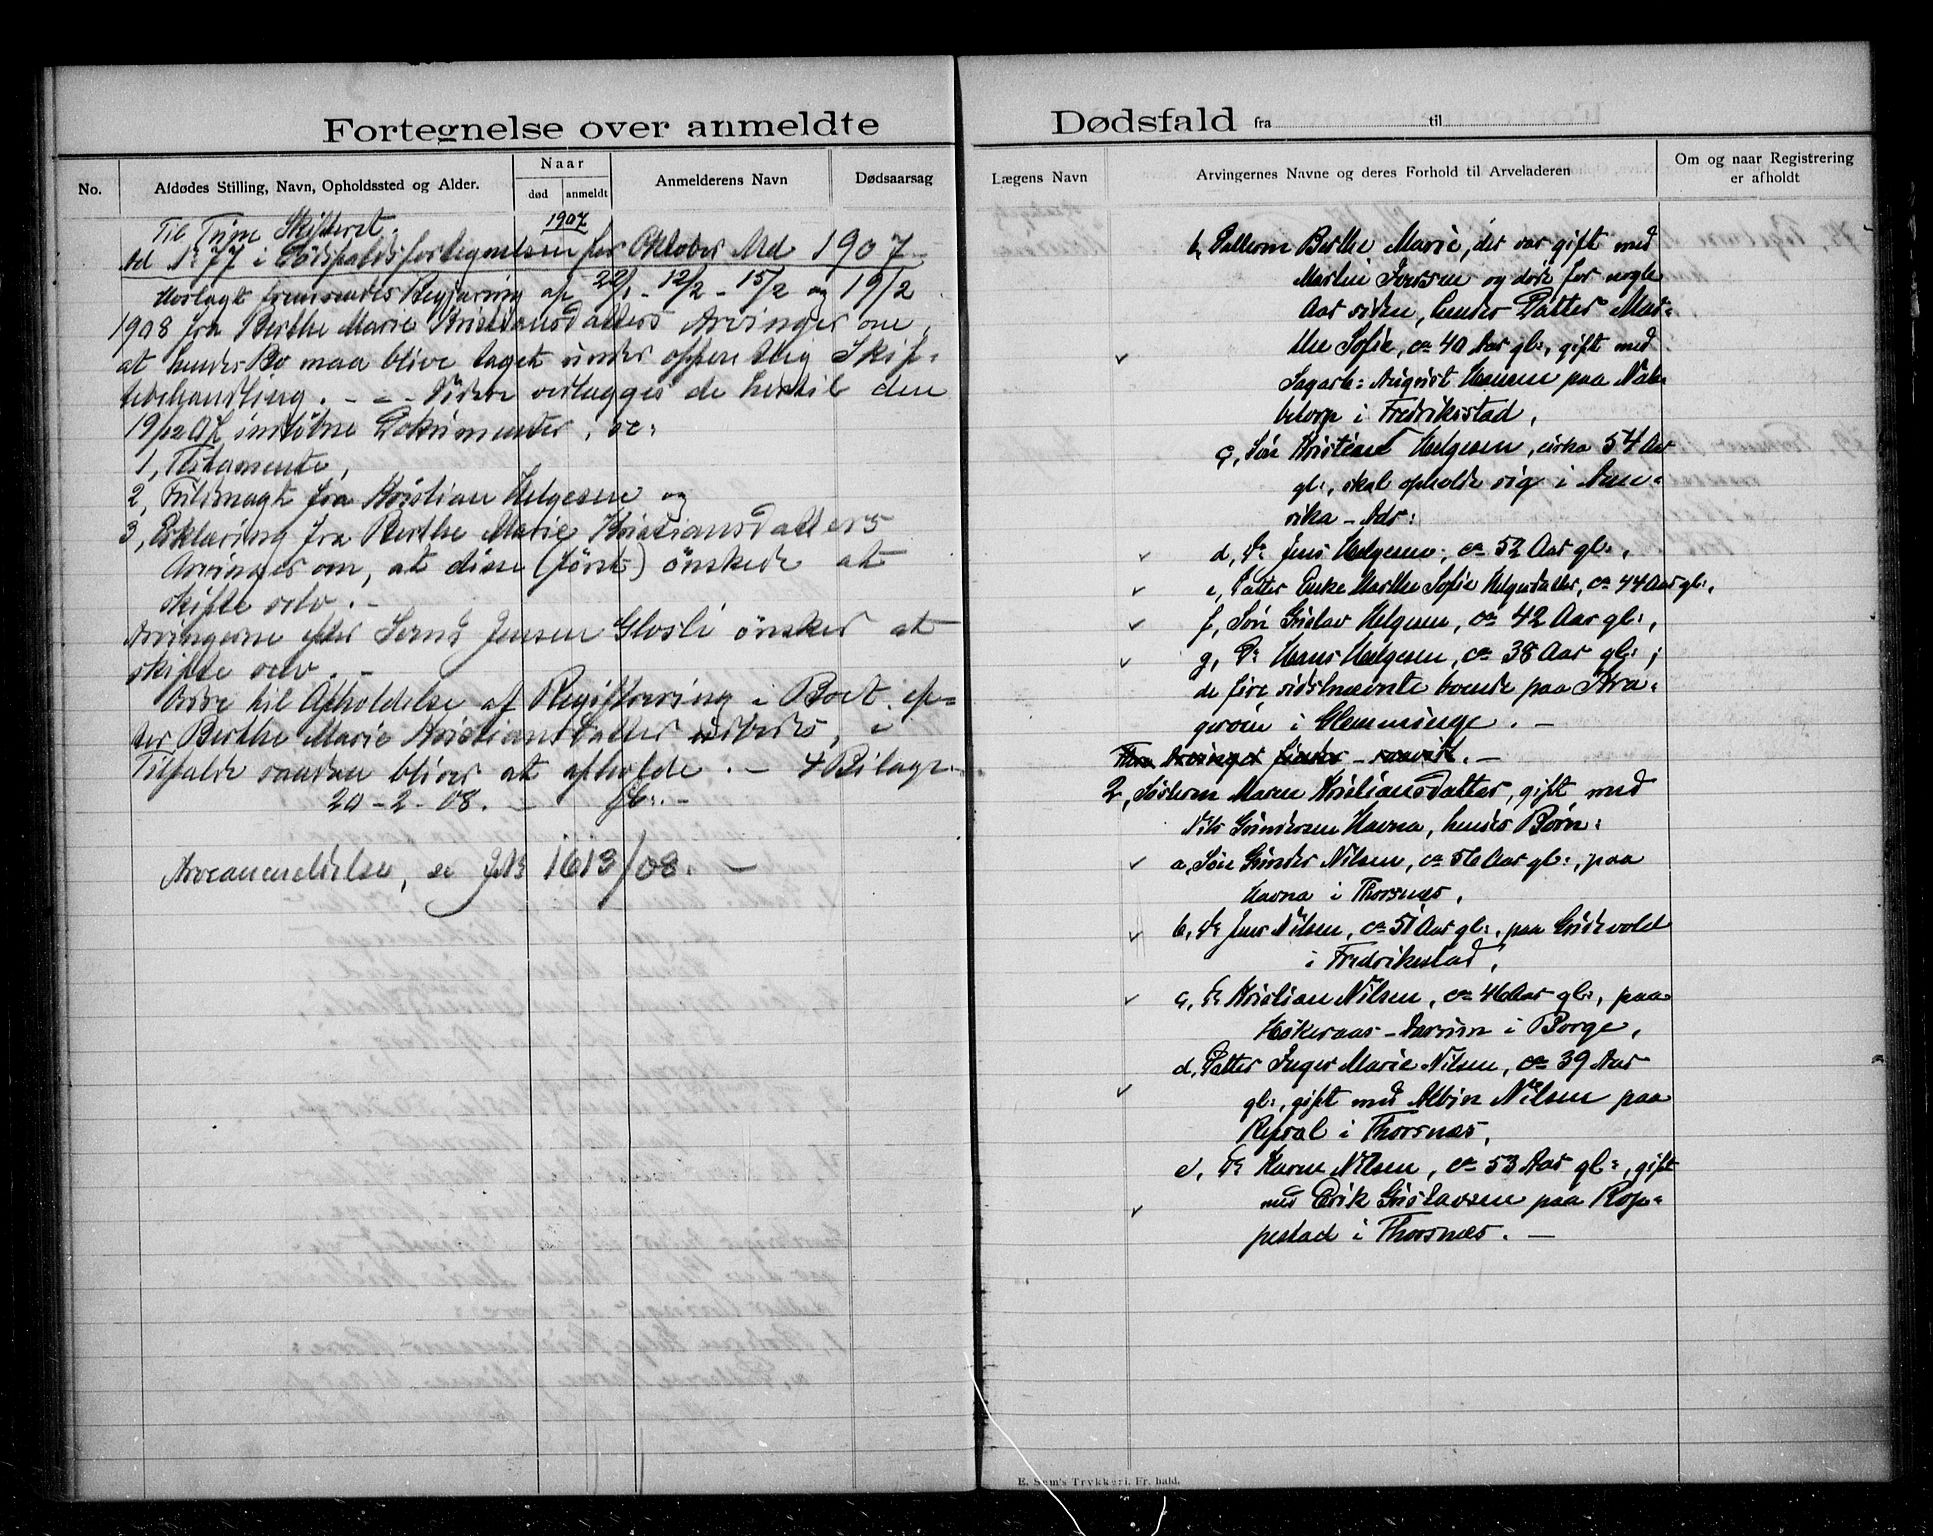 Fortegnelse over anmeldte
No.
Afdødes Stilling, Navn, Opholdssted og Alder.
Naar
død
anmeldt
Anmelderens Navn
Dødsaarsag
1907
Til Tune Skifteret.
Ad No 77 i Dødsfaldsfortegnelsen for Oktober Md 1907
Vedlagt fremsendes Begjæring af 22/1 - 12/2 - 15/2 og 19/2
1908 fra Berthe Marie Kristiansdatters Arvinger om,
at hendes Bo maa blive taget under offentlig Skif-
tebehandling. - Videre vedlægges de hertil den
19/12 07 indløbne Dokumenter, se:
1, Testamente,
2, Fuldmagt fra Kristian Helgesen og
3, Erklæring fra Berthe Marie Kristiansdatters
Arvinger om, at disse (først) ønskede at
skifte selv. -
Arvingerne efter Jens Jensen Glosli ønsker at
skifte selv. -
Ordre til Afholdelse af Registrering i Boet ef-
ter Berthe Marie Kristiansdatter udbedes, i
Tilfælde saadan bliver at afholde. - 4 Bilage.
20-2-08. -
Arveanmeldelse, se J.No 1613/08. -
Dødsfald fra til
Lægens Navn
Arvingernes Navne og deres Forhold til Arveladeren
Om og naar Registrering
er afholdt
b, Datteren Berthe Marie, der var gift med
Martin Iversen og døde for nogle
Aar siden, hendes Datter Mar-
the Sofie, ca 40 Aar gl:, gift med
Sagarb: August Hansen paa Nab-
betorp i Fredriksstad,
c, Søn Kristian Helgesen, cirka 54 Aar
gl:, skal opholde sig i Ame-
rika - Adr:
d, Do Jens Helgesen, ca 52 Aar gl:,
e, Datter Enke Marthe Sofie Helgesdatter, ca 44 Aar gl:,
f, Søn Gustav Helgesen, ca 42 Aar gl:,
g, Do Hans Helgesen, ca 38 Aar gl:,
de fire sidstnævnte boende paa Kra-
gerøen i Glemminge. -
2, Søsteren Maren Kristiansdatter, gift med
Nils Gundersen Havna, hendes Børn:
a, Søn Gunder Nilsen, ca 56 Aar gl:, paa
Havna i Thorsnæs,
b, Do Jens Nilsen, ca 51 Aar gl:, paa Gudevold
i Fredrikstad,
c, Do Kristian Nilsen, ca 46 Aar gl:, paa
Høkeraas - Torsnæs i Borge,
d, Datter Inger Marie Nilsen, ca 39 Aar
gl:, gift med Albin Nilsen paa
Refsal i Thorsnæs,
e, Do Karen Nilsen, ca 53 Aar gl:, gift
med Erik Gustavsen paa Rop-
pestad i Thorsnæs. -
E. Sem's Trykkeri, Fr. hald.